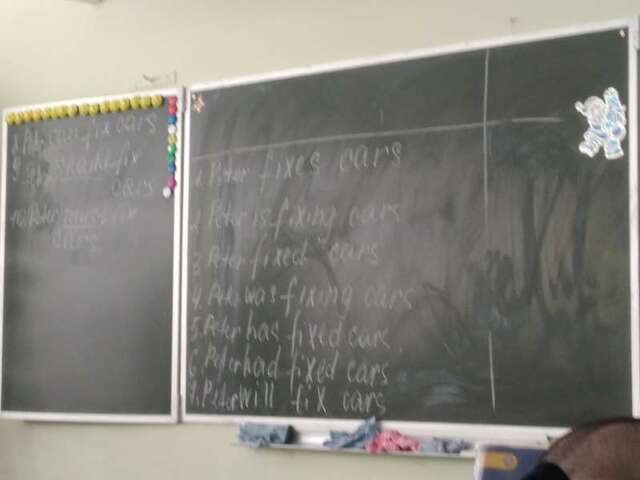 can fix cars
9. should fix
cars
10. Peter must fix
cars
1. Peter fixes cars
2. Peter is fixing cars
3 Peter fixed cars
4. Peter was fixing cars
5. Peter has fixed cars
6. Peter had fixed cars
7. Peter will fix cars